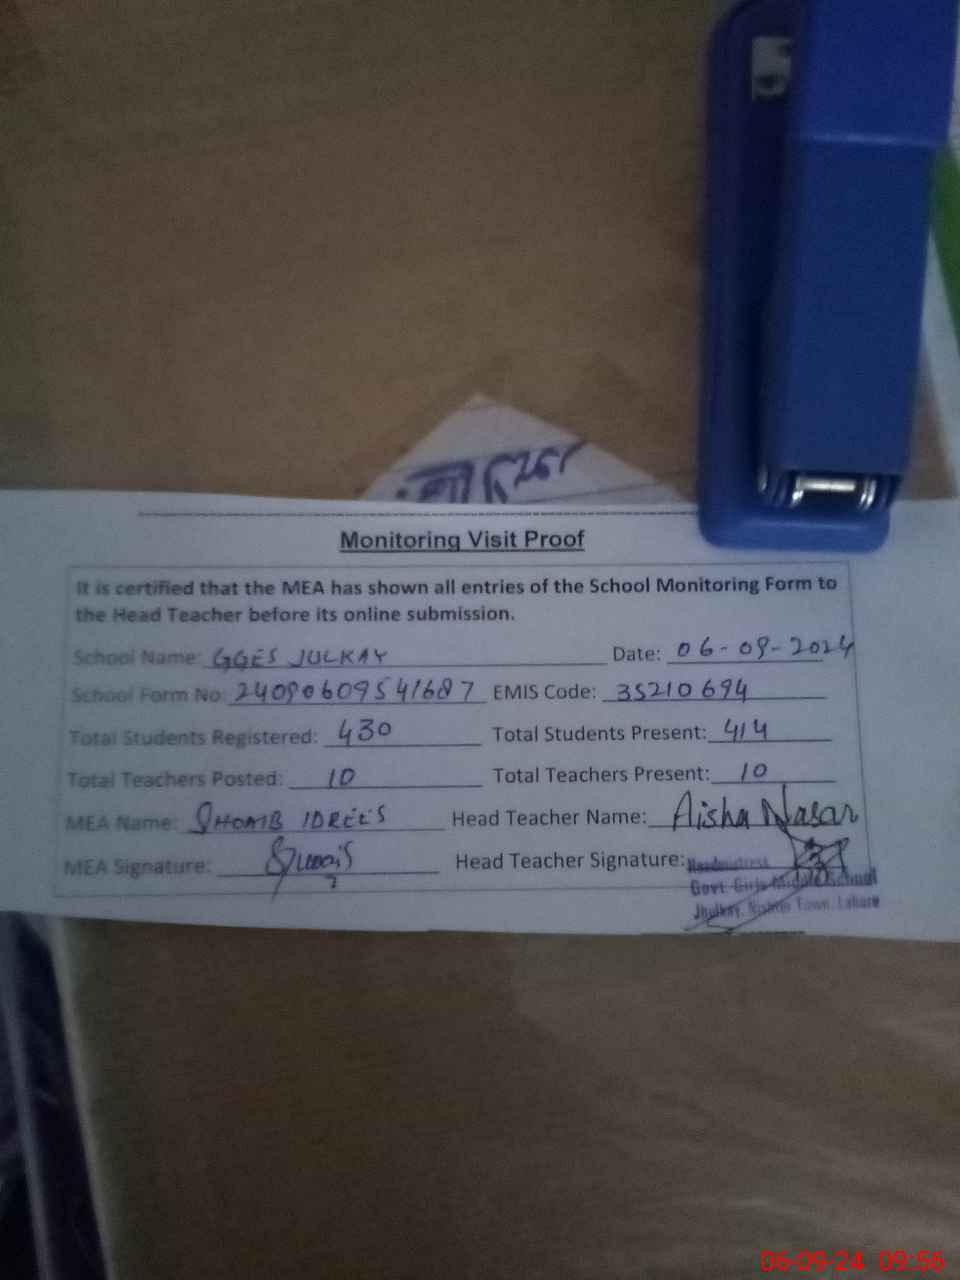 Monitoring Visit Proof
It is certified that the MEA has shown all entries of the School Monitoring Form to
the Head Teacher before its online submission.
School Name: GGES JULKAY Date: 06-09-2024
School Form No: 24090609541687 EMIS Code: 35210694
Total Students Registered: 430 Total Students Present: 414
Total Teachers Posted: 10 Total Teachers Present: 10
MEA Name: SHOAIB IDREES Head Teacher Name: Aisha Nasar
MEA Signature: Head Teacher Signature:
Headmistress
Govt. Girls Middle School
Jhulkay, Nishtar Town, Lahore
06-09-24 09:56